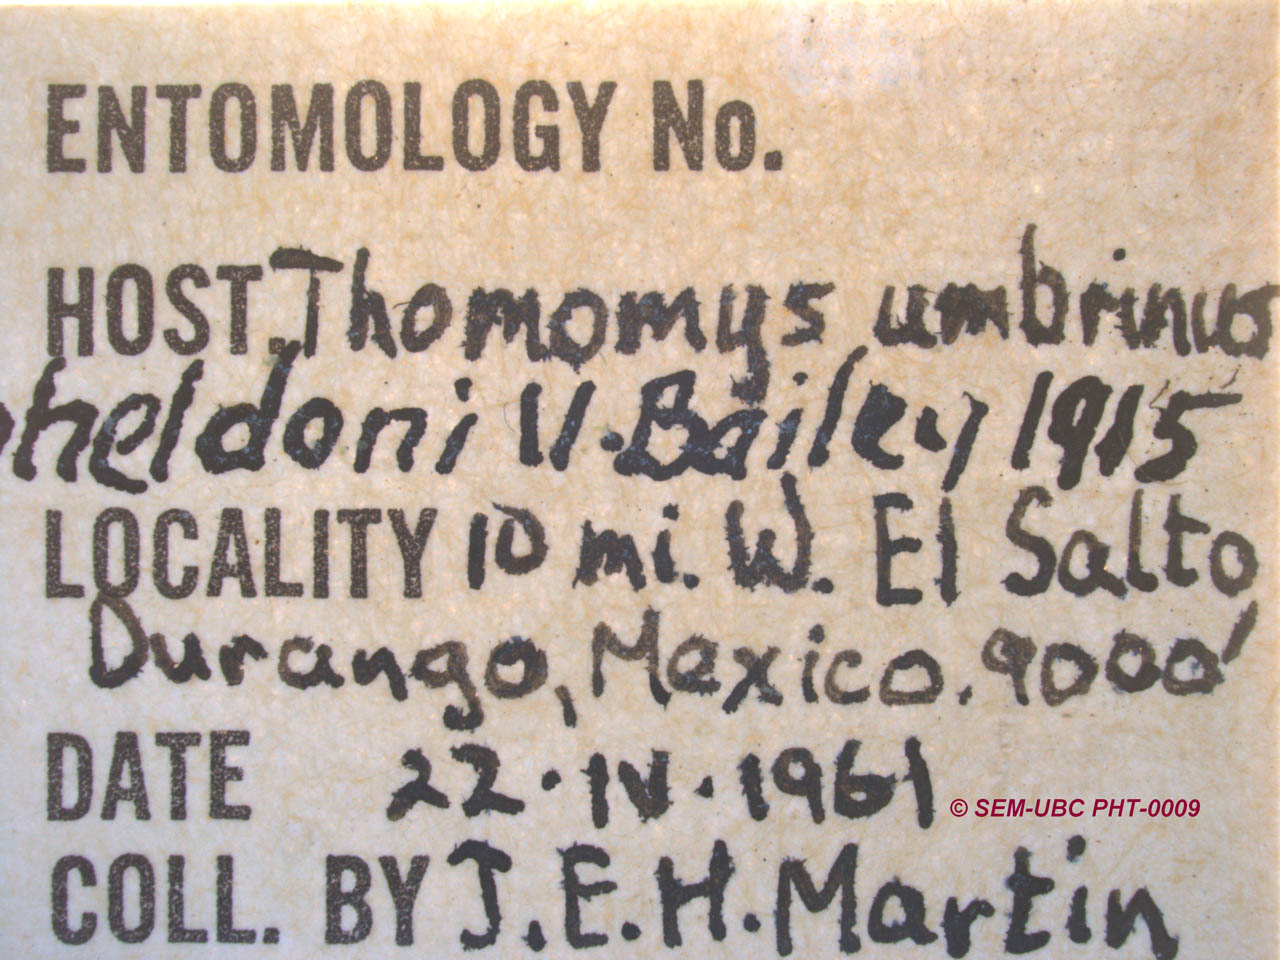 ENTOMOLOGY No.
HOST. Thomomys umbrinus
sheldoni V. Bailey 1915
LOCALITY 10 mi. W. El Salto
Durango, Mexico. 9000'
DATE 22·IV·1961
© SEM-UBC PHT-0009
COLL. BY J.E.H. Martin